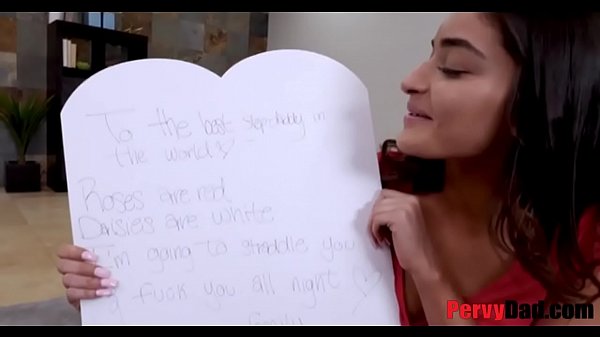 To the best step-daddy in
the world ♡
Roses are red
Daisies are white
I'm going to straddle you
fuck you all night ♡
PERVYDAD.COM